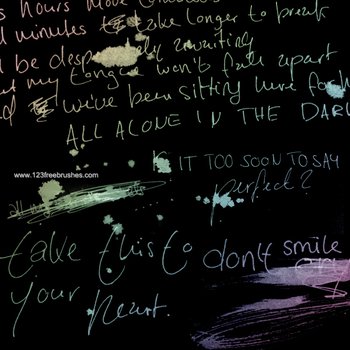 s hours move
minutes to take longer to break
be desperately awaiting
my tongue won't fall apart
we've been sitting here for h
ALL ALONE IN THE DAR
IS IT TOO SOON TO SAY
perfect?
www.123freebrushes.com
take this to don't smile
your heart.